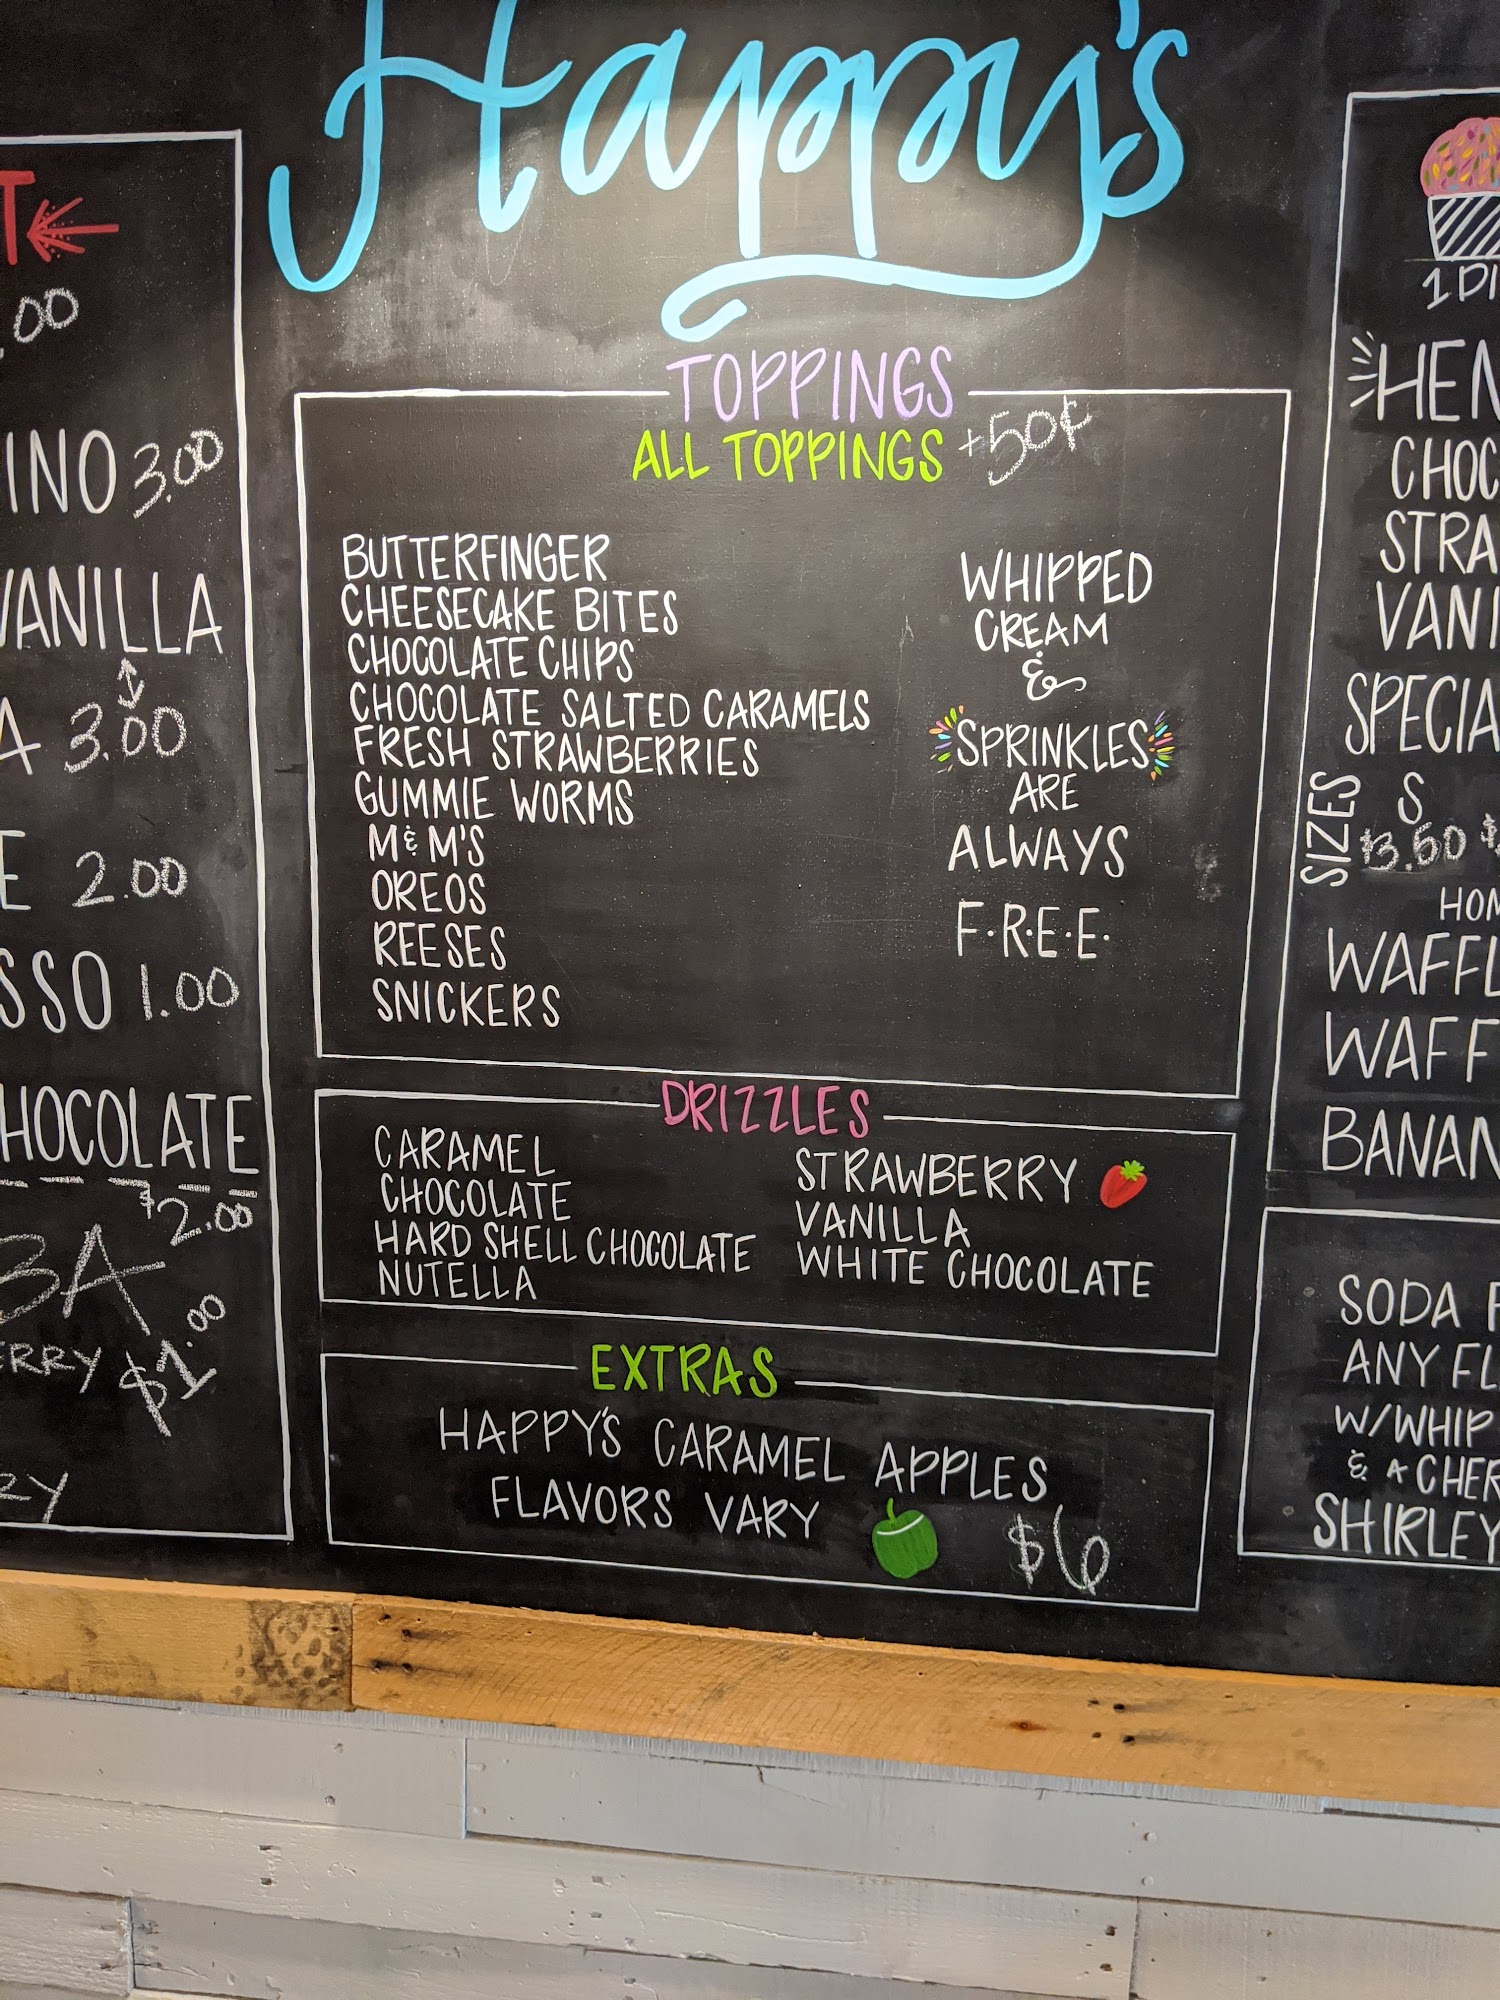 Happy's
TOPPINGS
ALL TOPPINGS +50¢
BUTTERFINGER
CHEESECAKE BITES
CHOCOLATE CHIPS
CHOCOLATE SALTED CARAMELS
FRESH STRAWBERRIES
GUMMIE WORMS
M&M'S
OREOS
REESES
SNICKERS
WHIPPED
CREAM
&
SPRINKLES
ARE
ALWAYS
F.R.E.E.
DRIZZLES
CARAMEL
CHOCOLATE
HARD SHELL CHOCOLATE
NUTELLA
STRAWBERRY
VANILLA
WHITE CHOCOLATE
EXTRAS
HAPPY'S CARAMEL APPLES
FLAVORS VARY $6
T
.00
INO 3.00
VANILLA
A 3.00
E 2.00
SSO 1.00
HOCOLATE
$2.00
BA
ERRY $1.00
RY
1 DI
HEN
CHOC
STRA
VANI
SPECIA
SIZES
S
$3.50 $
HOM
WAFFL
WAFF
BANAN
SODA F
ANY FL
W/WHIP
& A CHER
SHIRLEY